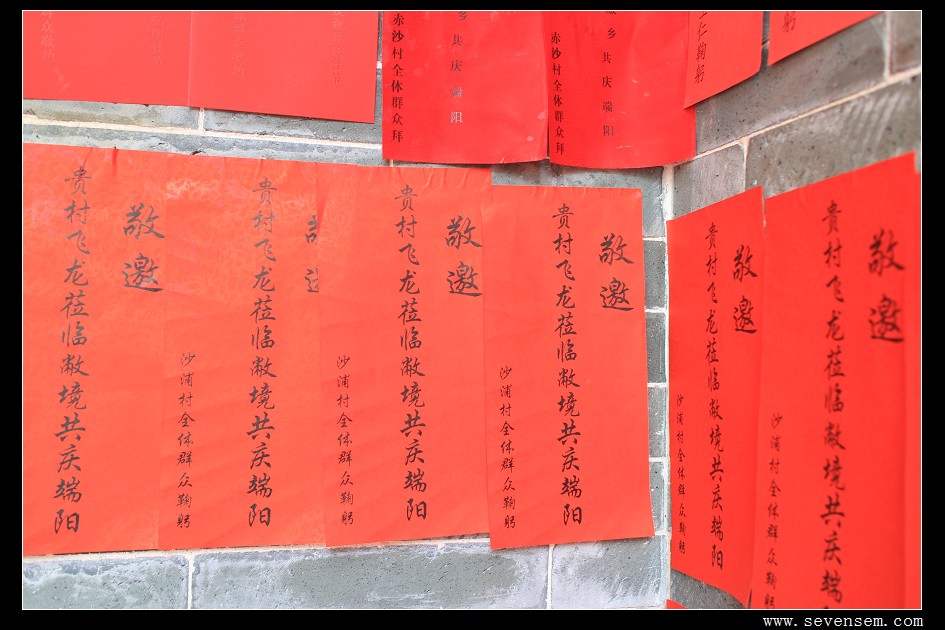 赤沙村全体群众拜
乡共庆端阳
赤沙村全体群众拜
乡共庆端阳
仁鞠躬
躬
贵村飞龙莅临敝境共庆端阳
敬邀
沙浦村全体群众鞠躬
贵村飞龙莅临敝境共庆端阳
沙浦村全体群众鞠躬
敬邀
贵村飞龙莅临敝境共庆端阳
敬邀
沙浦村全体群众鞠躬
贵村飞龙莅临敝境共庆端阳
敬邀
沙浦村全体群众鞠躬
贵村飞龙莅临敝境共庆端阳
敬邀
沙浦村全体群众鞠躬
贵村飞龙莅临敝境共庆端阳
www.sevensem.com